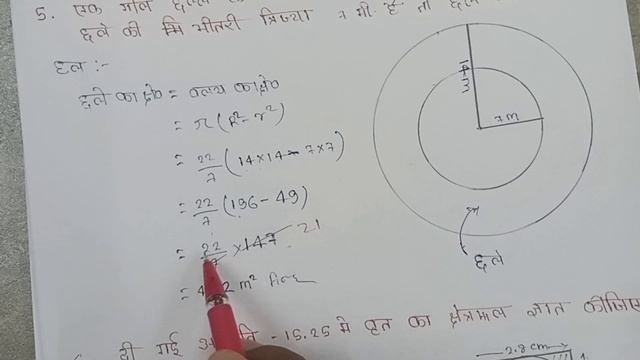 5. एक गोल छल्ले
छल्ले की भीतरी त्रिज्या 7 मी. है तो
हल :-
छल्ले का क्षे० = वलय का क्षे०
= π(R²-r²)
= 22/7 (14×14-7×7)
= 22/7 (196-49)
= 22/7 ×147 21
= 2 m²
14m
7m
छल्ले
दी गई - 15.25 में वृत का क्षेत्रफल ज्ञात कीजिए
2.8cm